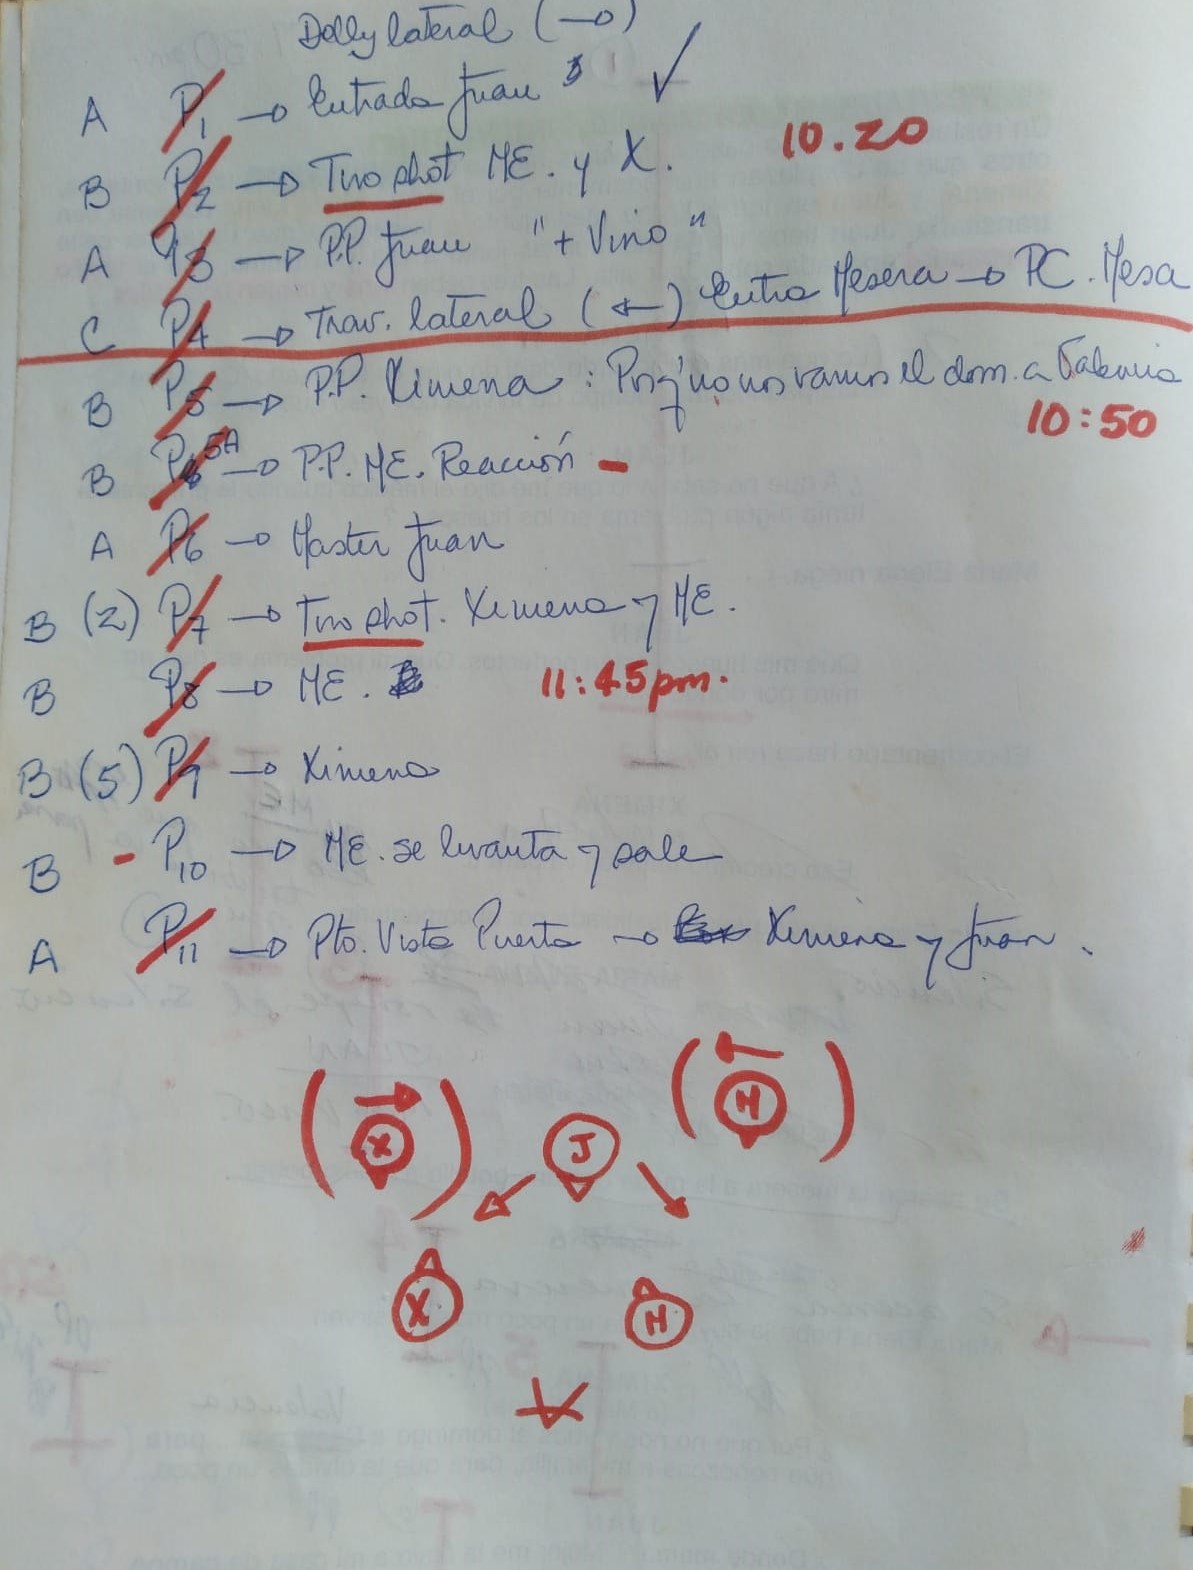 Dolly lateral (→)
A P1 → Entrada Juan ✓
B P2 → Two shot ME. y X. 10.20
A P3 → P.P. Juan "+ Vino"
C P4 → Trav. lateral (←) Entra Mesera → PC. Mesa
B P5 → P.P. Ximena : Porq' no nos vamos el dom. a Valencia
10:50
B P 5A → P.P. ME. Reacción -
A P6 → Master Juan
B (2) P7 → Two shot. Ximena y ME.
B P8 → ME. 11:45pm.
B (5) P9 → Ximena
B - P10 → ME. se levanta y sale
A P11 → Pto. Vista Puerta → Ximena y Juan.
(X) J (M)
X M